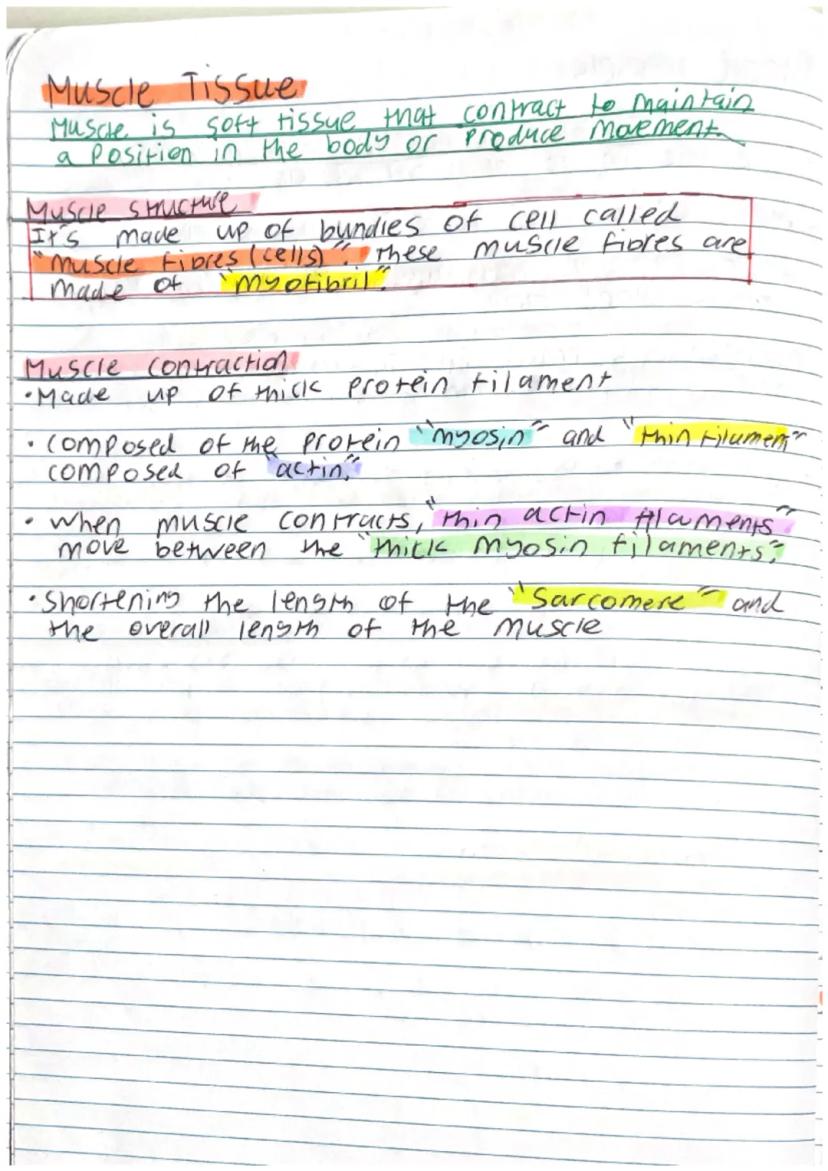 Muscle Tissue
Muscle is soft tissue that contract to maintain
a position in the body or produce movement
Muscle structure
It's made up of bundles of cell called
"muscle fibres (cells)". These muscle fibres are
made of "myofibril".
Muscle contraction
• Made up of thick protein filament
• composed of the protein "myosin" and "thin filament"
composed of "actin".
• when muscle contracts, "thin actin filaments"
move between the "thick myosin filaments".
• shortening the length of the "sarcomere" and
the overall length of the muscle